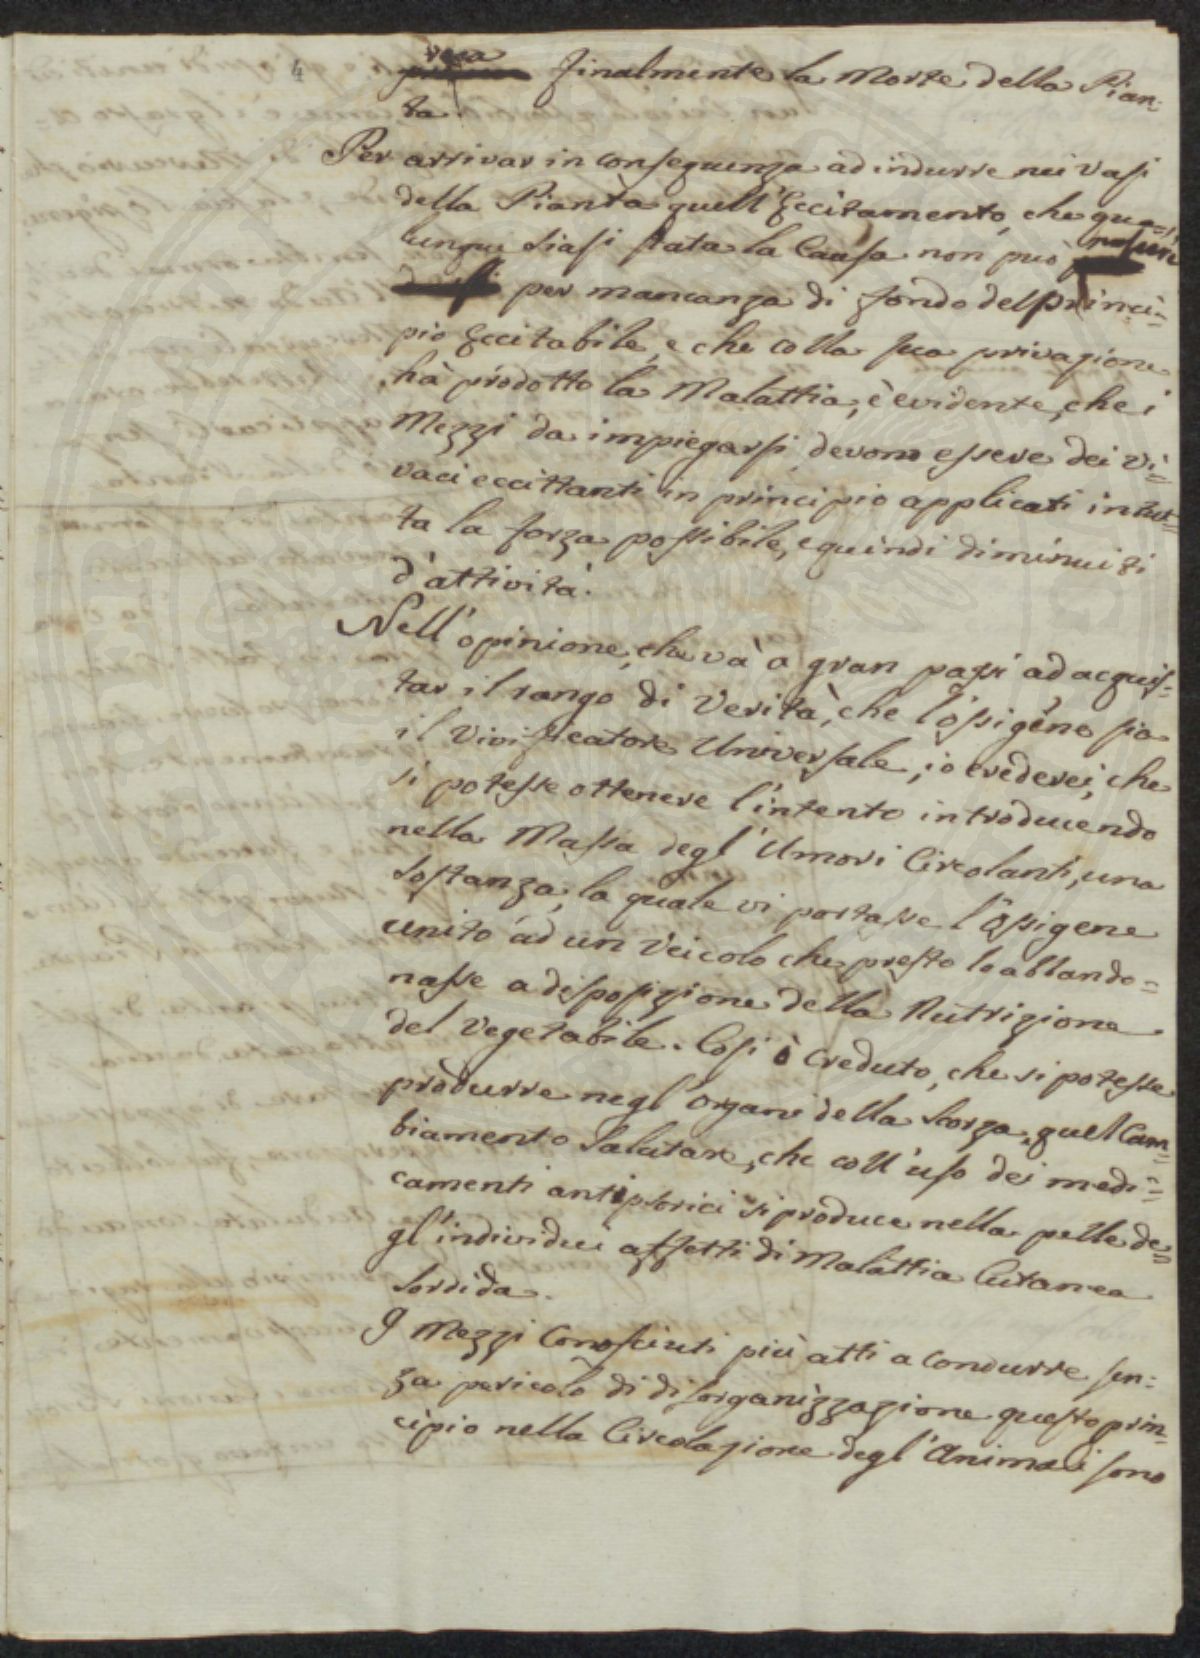 4
vera
finalmente la Morte della Pian:
ta.
Per arrivar in conseguenza ad indurre nei vasi
della Pianta quell'Eccitamento, che qua=
lunque siasi stata la Causa non può nascere
per mancanza di fondo del princi=
pio Eccitabile, e che colla sua privazione
hà prodotto la Malattia, è evidente, che i
Mezzi da impiegarsi devono essere dei vi=
vaci eccittanti in principio applicati in tut=
ta la forza possibile, e quindi diminuiti
d'attività.
Nell'opinione, che và a gran passi ad acquis=
tar il rango di Verità, che l'ossigeno sia
il Vivificatore Universale, io crederei, che
si potesse ottenere l'intento introducendo
nella Massa degl'Umori Circolanti, una
sostanza, la quale vi portasse l'ossigene
unito ad un veicolo che presto lo abbando=
nasse a disposizione della Nutrizione
del Vegetabile. Così ò creduto, che si potesse
produrre negl'organi della Scorza, quel Cam=
biamento Salutare, che coll'uso dei medi=
camenti antipsorici si produce nella pelle de=
gl'individui affetti di Malattia Cutanea
Sordida.
I Mezzi Conosciuti più atti a condurre sen:
za pericolo di disorganizzazione questo prin=
cipio nella Circolazione degl'Animali sono